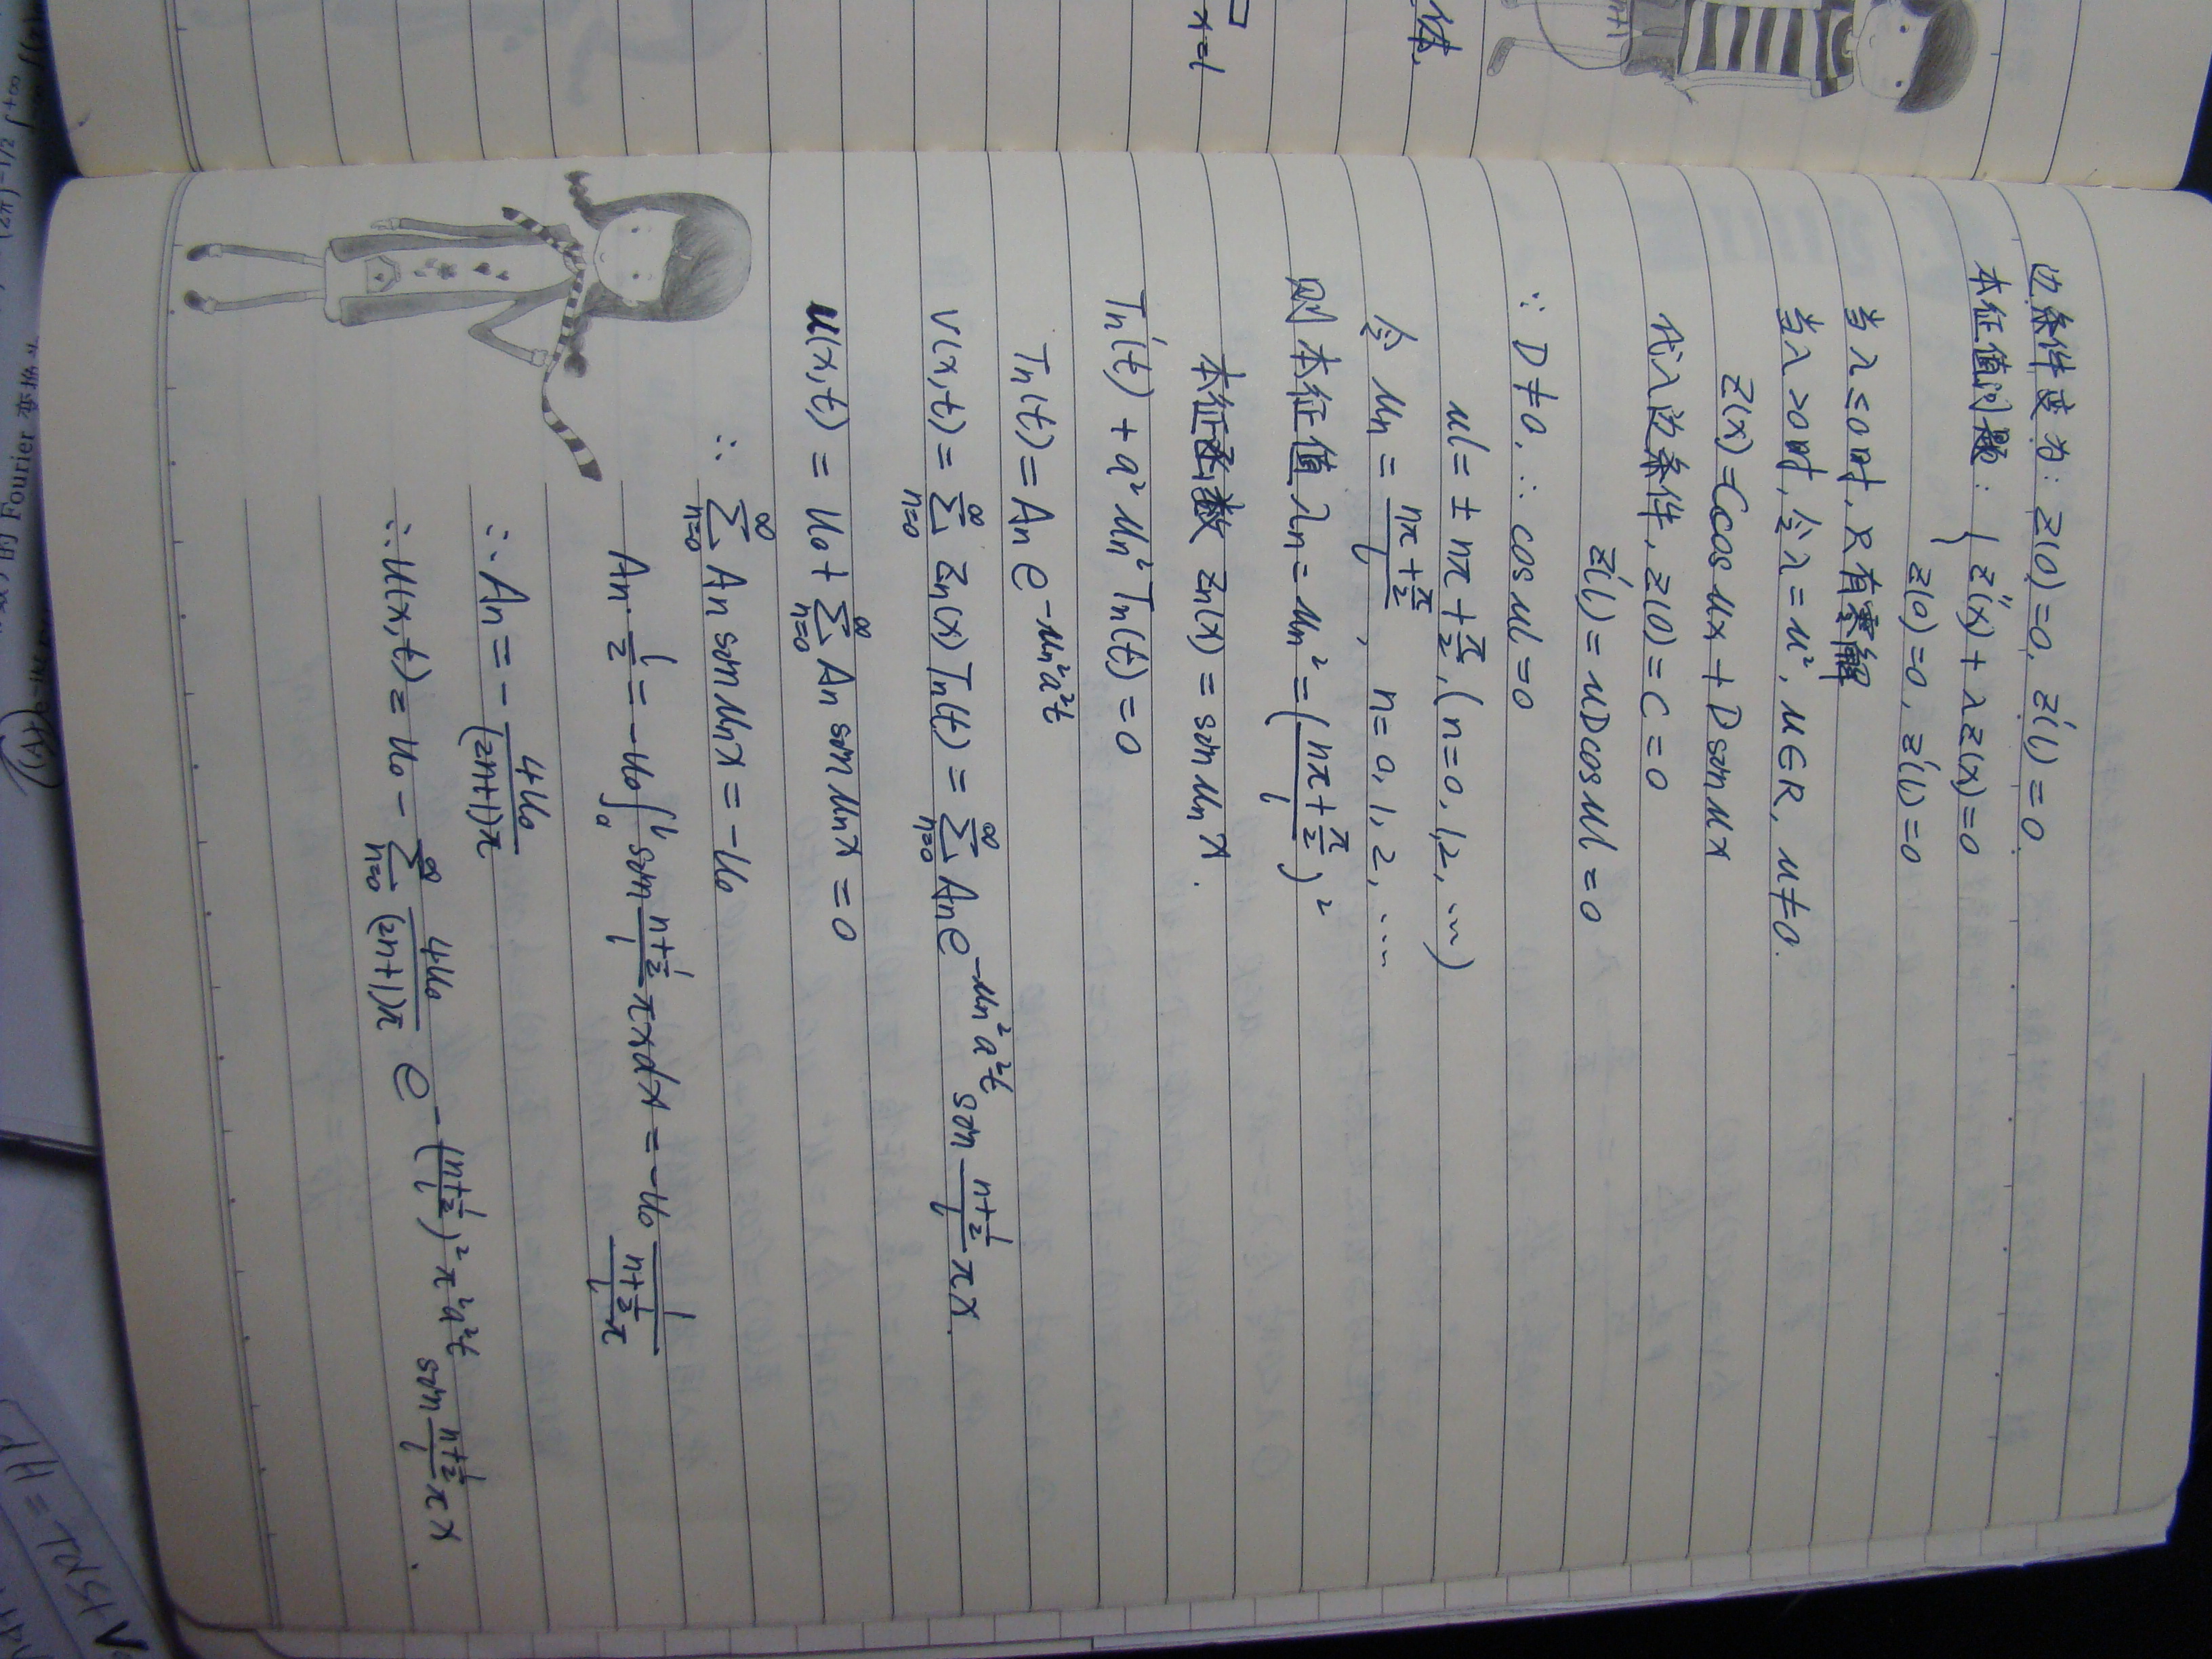 边条件变为: Z(0)=0, Z'(l)=0.
本征值问题: { Z''(x)+λZ(x)=0
Z(0)=0, Z'(l)=0
当λ≤0时, 只有零解
当λ>0时, 令λ=μ², μ∈R, μ≠0.
Z(x)=Ccosμx+Dsinμx
代入边条件, Z(0)=C=0
Z'(l)=μDcosμl=0
∵D≠0, ∴cosμl=0
μl=±nπ+π/2, (n=0,1,2,…)
令 μn=(nπ+π/2)/l, n=0,1,2,…
则本征值 λn=μn²=((nπ+π/2)/l)²
本征函数 Zn(x)=sinμnx.
Tn'(t)+a²μn²Tn(t)=0
Tn(t)=An e^{-μn²a²t}
V(x,t)=∑_{n=0}^{∞} Zn(x)Tn(t)=∑_{n=0}^{∞} An e^{-μn²a²t} sin (n+1/2)/l πx.
u(x,t)=u₀+∑_{n=0}^{∞} An sinμnx=0
∴ ∑_{n=0}^{∞} An sinμnx=-u₀
An·l/2=-u₀∫₀^l sin (n+1/2)/l πxdx=-u₀ 1/((n+1/2)/l π)
∴An=-4u₀/((2n+1)π)
∴u(x,t)=u₀-∑_{n=0}^{∞} 4u₀/((2n+1)π) e^{-((n+1/2)/l)²π²a²t} sin (n+1/2)/l πx.
x=l
体.
的 Fourier 变换